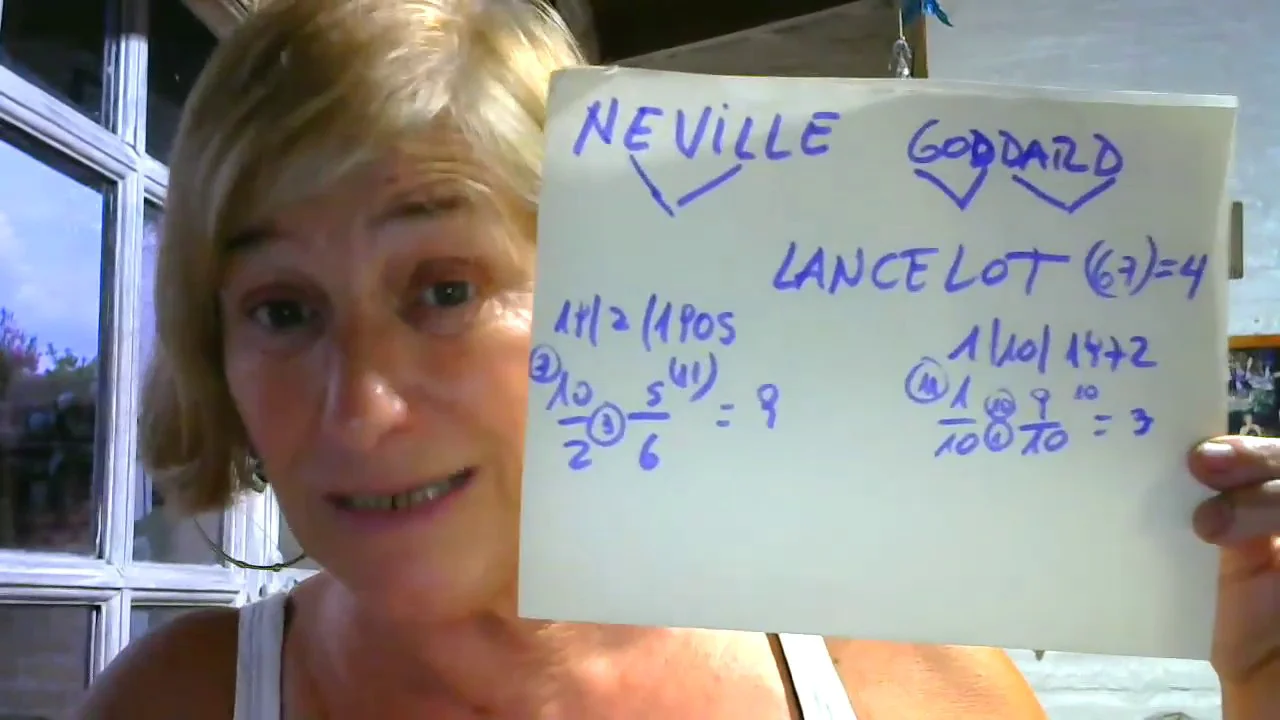 NEVILLE GODDARD
LANCELOT (67)=4
14/2/1905
1/10/1972
② 10 5 (11)
2 ③ 6 = 9
1 9 10
10 10 = 3